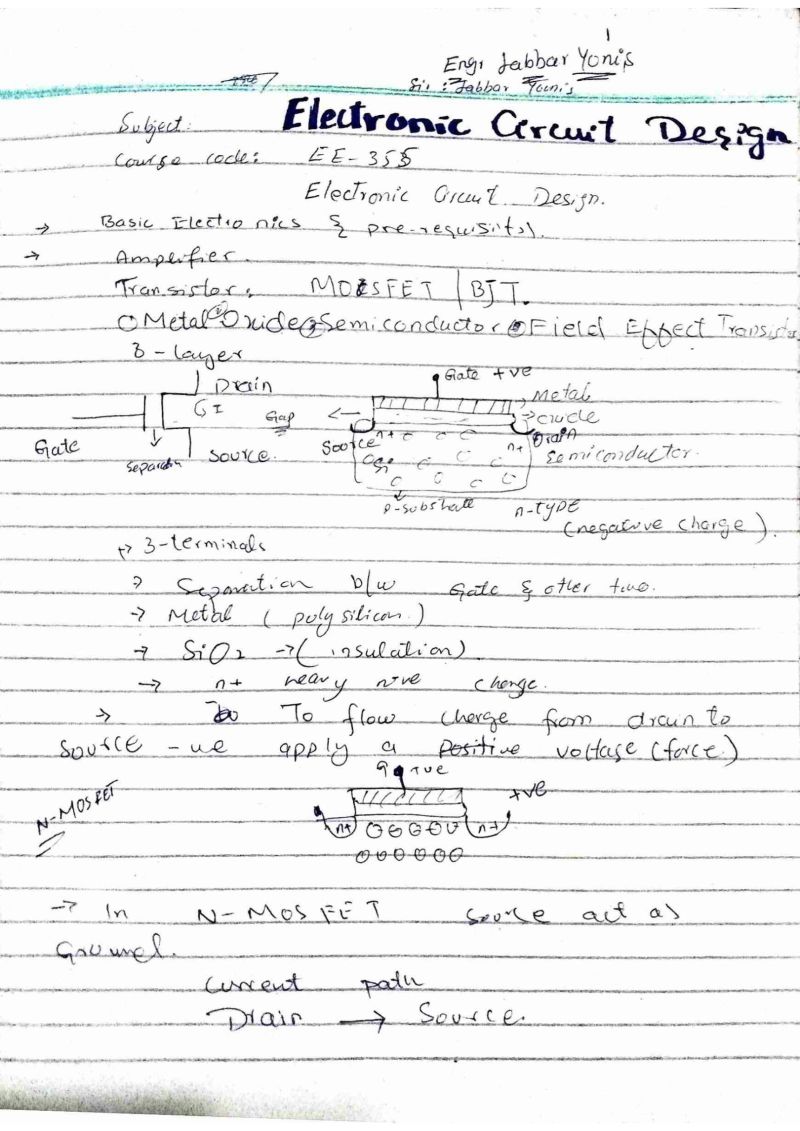 1
Engr Jabbar Yonis
Sir : Jabbar Younis
Subject: Electronic Circuit Design
Course code: EE-355
Electronic Circuit Design.
→ Basic Electronics & pre-requisites.
→ Amplifier.
Transistor: MOSFET | BJT.
Metal Oxide Semiconductor Field Effect Transistor
3-layer
Gate +ve
Drain
Metal
GI
Gap
Oxide
Gate
Source
n+
n+
Drain
Separation
Source.
Semiconductor.
P-substrate
n-type
(negative charge).
↦ 3-terminals
→ Separation b/w Gate & other two.
→ Metal (poly silicon.)
→ SiO2 →( insulation)
→ n+ heavy n-ve charge.
→ To flow charge from drain to
Source - we apply a Positive voltage (force.)
G +ve
N-MOSFET
+ve
n+
n+
→ In N-MOSFET source act as
Ground.
Current path
Drain → Source.